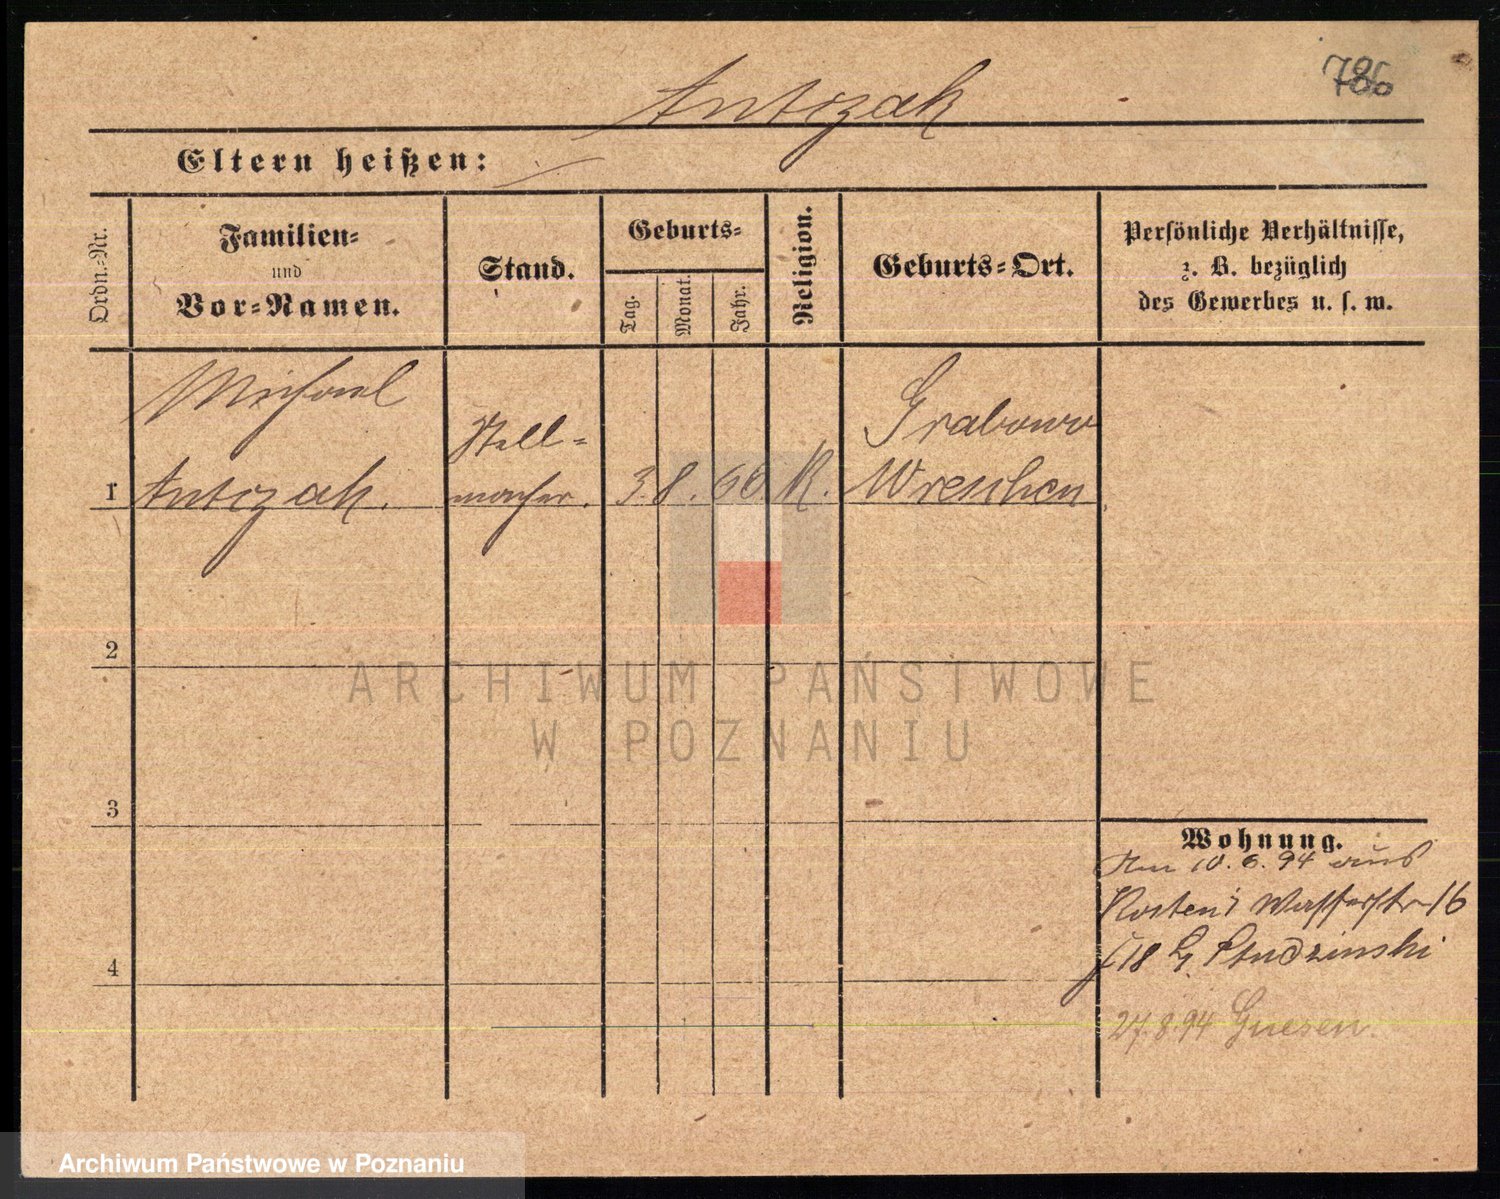 Antczak
Eltern heißen:
Ordn.-Nr.
Familien-
und
Vor-Namen.
Stand.
Geburts-
Tag.
Monat.
Jahr.
Religion.
Geburts-Ort.
Persönliche Verhältnisse,
z. B. bezüglich
des Gewerbes u. s. w.
Michael
Antczak.
Stell-
macher.
3. 8. 66. K.
Grabowo
Wreschen
1
2
3
4
Wohnung.
Am 10. 6. 94 aus
Kosten Wasserstr 16
18 Studzinski
27.8.94 Gnesen.
ARCHIWUM PAŃSTWOWE
W POZNANIU
Archiwum Państwowe w Poznaniu